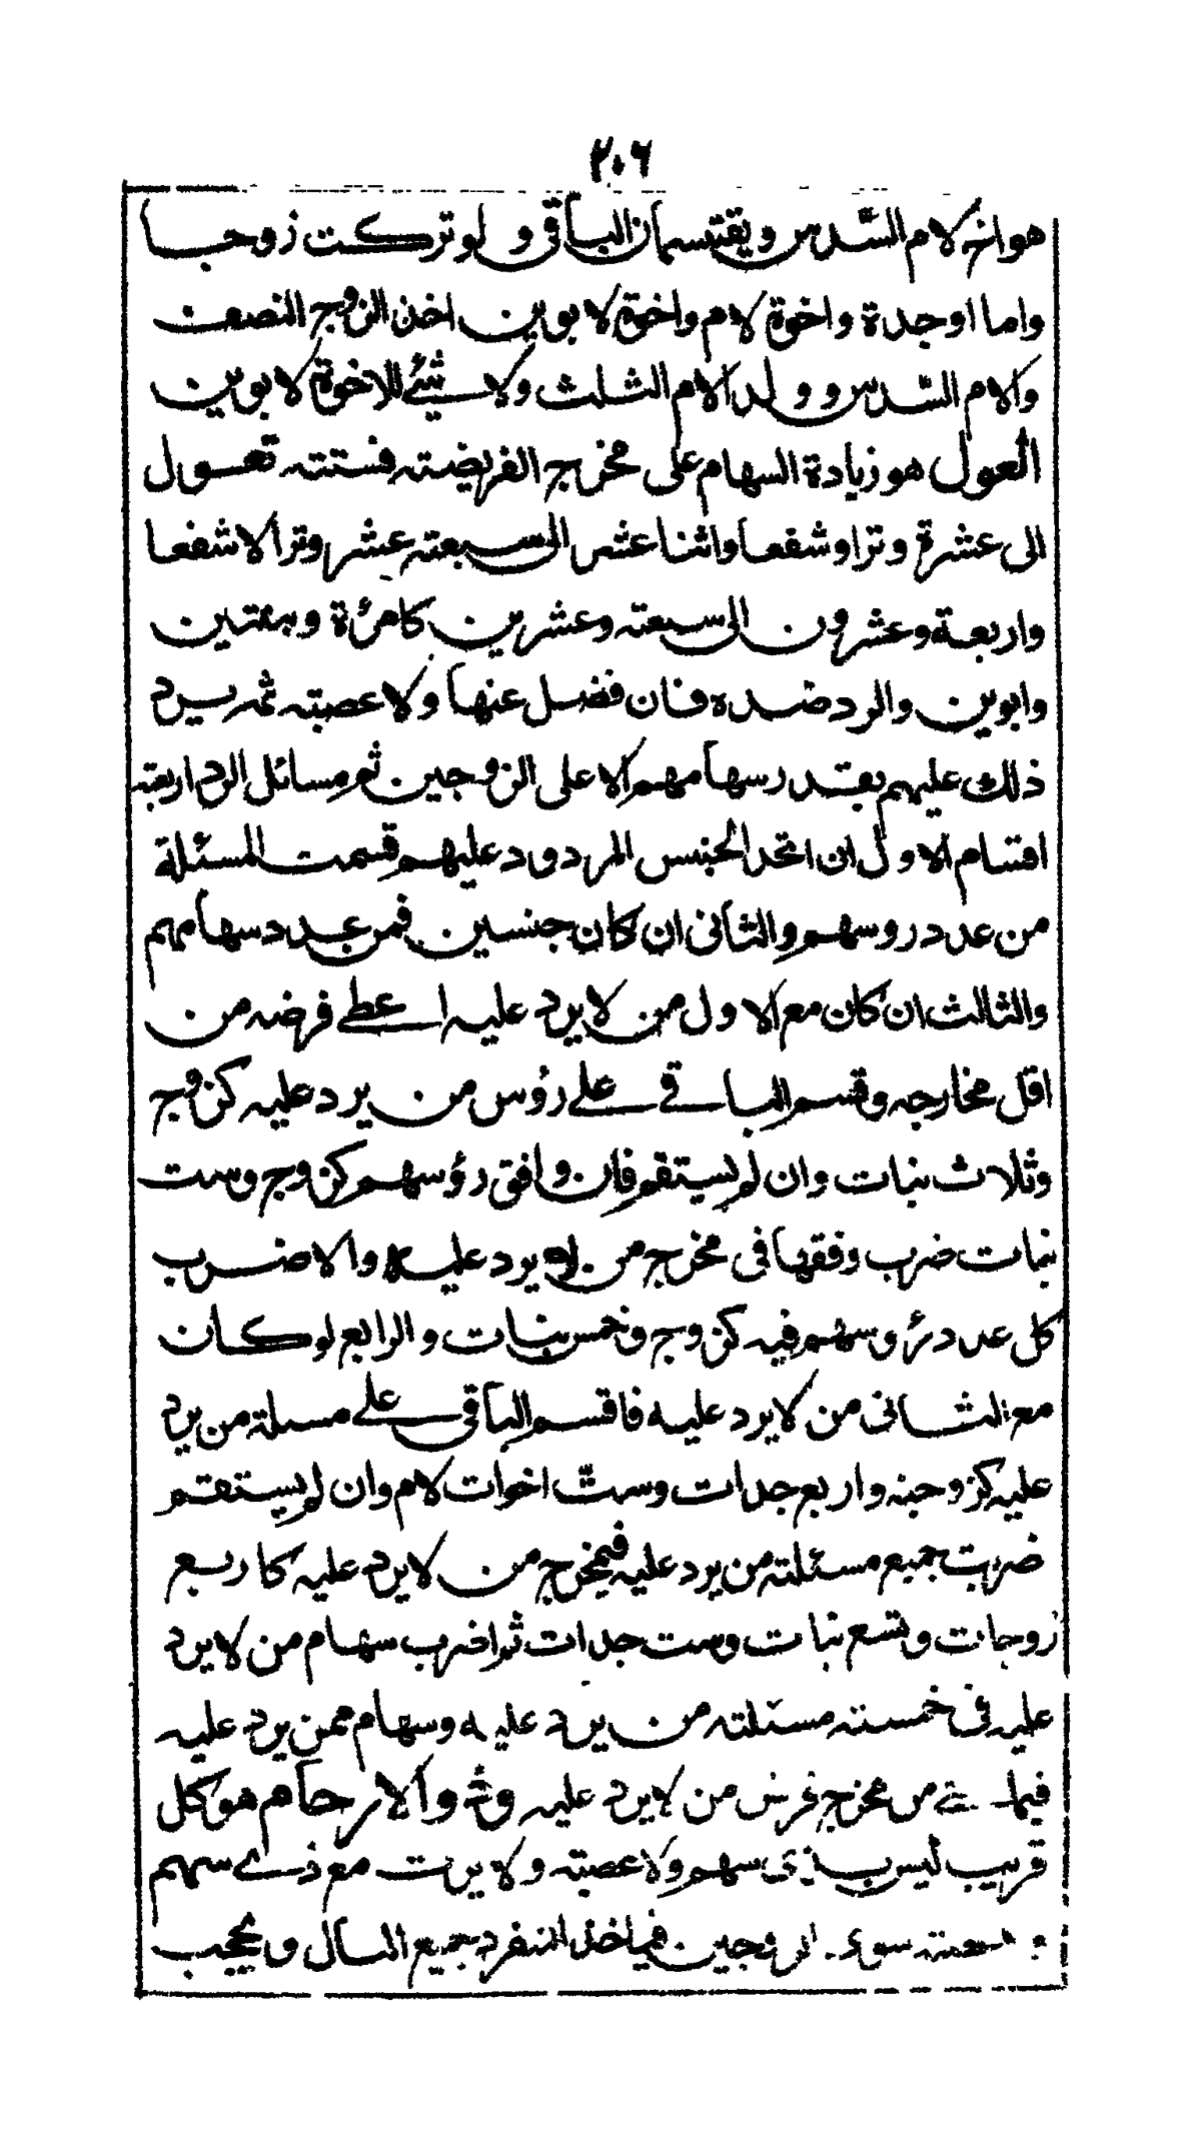 ٢٠٦
هو اخ لام السّدس و يقتسمان الباقى و لو تركت زوجا
واما او جدة واخوة لام واخوة لابوين اخذ الزوج النصف
والام السّدس و ولد الام الثلث ولا شيئ للاخوة لابوين
العول هو زيادة السهام على مخرج الفريضته فستته تعول
الى عشرة وترا وشفعا واثنا عشر الى سبعته عشر وترا لا شفعا
واربعة وعشرون الى سبعته وعشرين كامرٔاة وبنتين
وابوين والرد ضده فان فضل عنها ولا عصبته ثمه يرد
ذلك عليهم بقدر سهامهم الا على الزوجين ثم مسائل الرد اربعته
اقسام الاول ان اتحد الجنس المردود عليهم قسمت المسئلة
من عدد روسهم والثانى ان كان جنسين فمن عدد سهامهم
والثالث ان كان مع الاول من لا يرد عليه اعطے فرضه من
اقل مخارجه وقسم الباقے علے رؤس من يرد عليه كزوج
وثلاث بنات وان لم يستقم فان وافق رؤسهم كزوج وست
بنات ضرب وفقها فى مخرج من لا يرد عليه والا ضرب
كل عدد رؤسهم فيه كزوج وخمس بنات والرابع لو كان
مع الثانى من لا يرد عليه فاقسم الباقى علے مسلة من يرد
عليه كزوجته واربع جدات وستّ اخوات لام وان لم يستقم
ضربت جميع مسئلته من يرد عليه فى مخرج من لا يرد عليه كاربع
زوجات وتسع بنات وست جدات ثم اضرب سهام من لا يرد
عليه فى خمسته مسئلته من يرد عليه وسهام ممن يرد عليه
فيما بقے من مخرج فرض من لا يرد عليه وذو والارحام هو كل
قريب ليس بذى سهم ولا عصبته ولا يرث مع ذے سهم
و عصبته سوى الزوجين فياخذ المنفرد جميع المال و يحجب